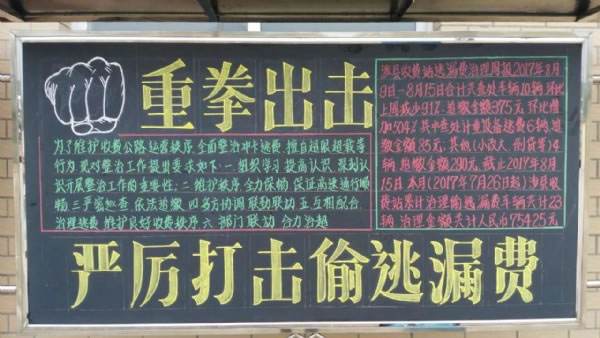 重拳出击
为了维护收费公路运营秩序,全面整治冲卡逃费,擅自超限超载等
行为,现对整治工作提出要求如下:一.组织学习 提高认识,深刻认
识开展整治工作的重要性;二.维护秩序,全力保畅,保证高速通行顺
畅 三.严密巡查 依法追缴 四.多方协调 联勤联动 五.互相配合
治理逃费 维护良好收费秩序 六.部门联动 合力治超
涉县收费站逃漏费治理周报2017年8月
9日-8月15日合计共查处车辆10辆,环比
上周减少91%.追缴金额375元,环比增
加504%其中查处计重设备逃费6辆,追
缴金额85元,其他(小改大 刑荷等)4
辆,追缴金额290元,截止2017年8月
15日本月(2017年7月26日起)涉县收
费站累计治理偷逃漏费车辆共计23
辆,治理金额共计人民币754.25元
严厉打击偷逃漏费